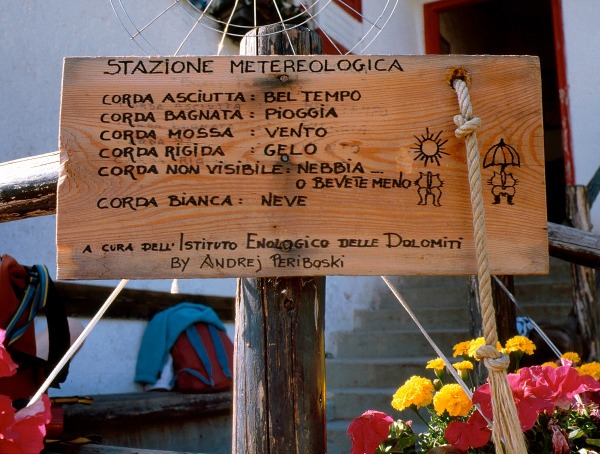 STAZIONE METEREOLOGICA
CORDA ASCIUTTA: BEL TEMPO
CORDA BAGNATA: PIOGGIA
CORDA MOSSA: VENTO
CORDA RIGIDA: GELO
CORDA NON VISIBILE: NEBBIA...
O BEVETE MENO
CORDA BIANCA: NEVE
A CURA DELL'ISTITUTO ENOLOGICO DELLE DOLOMITI
BY ANDREJ PERIBOSKI